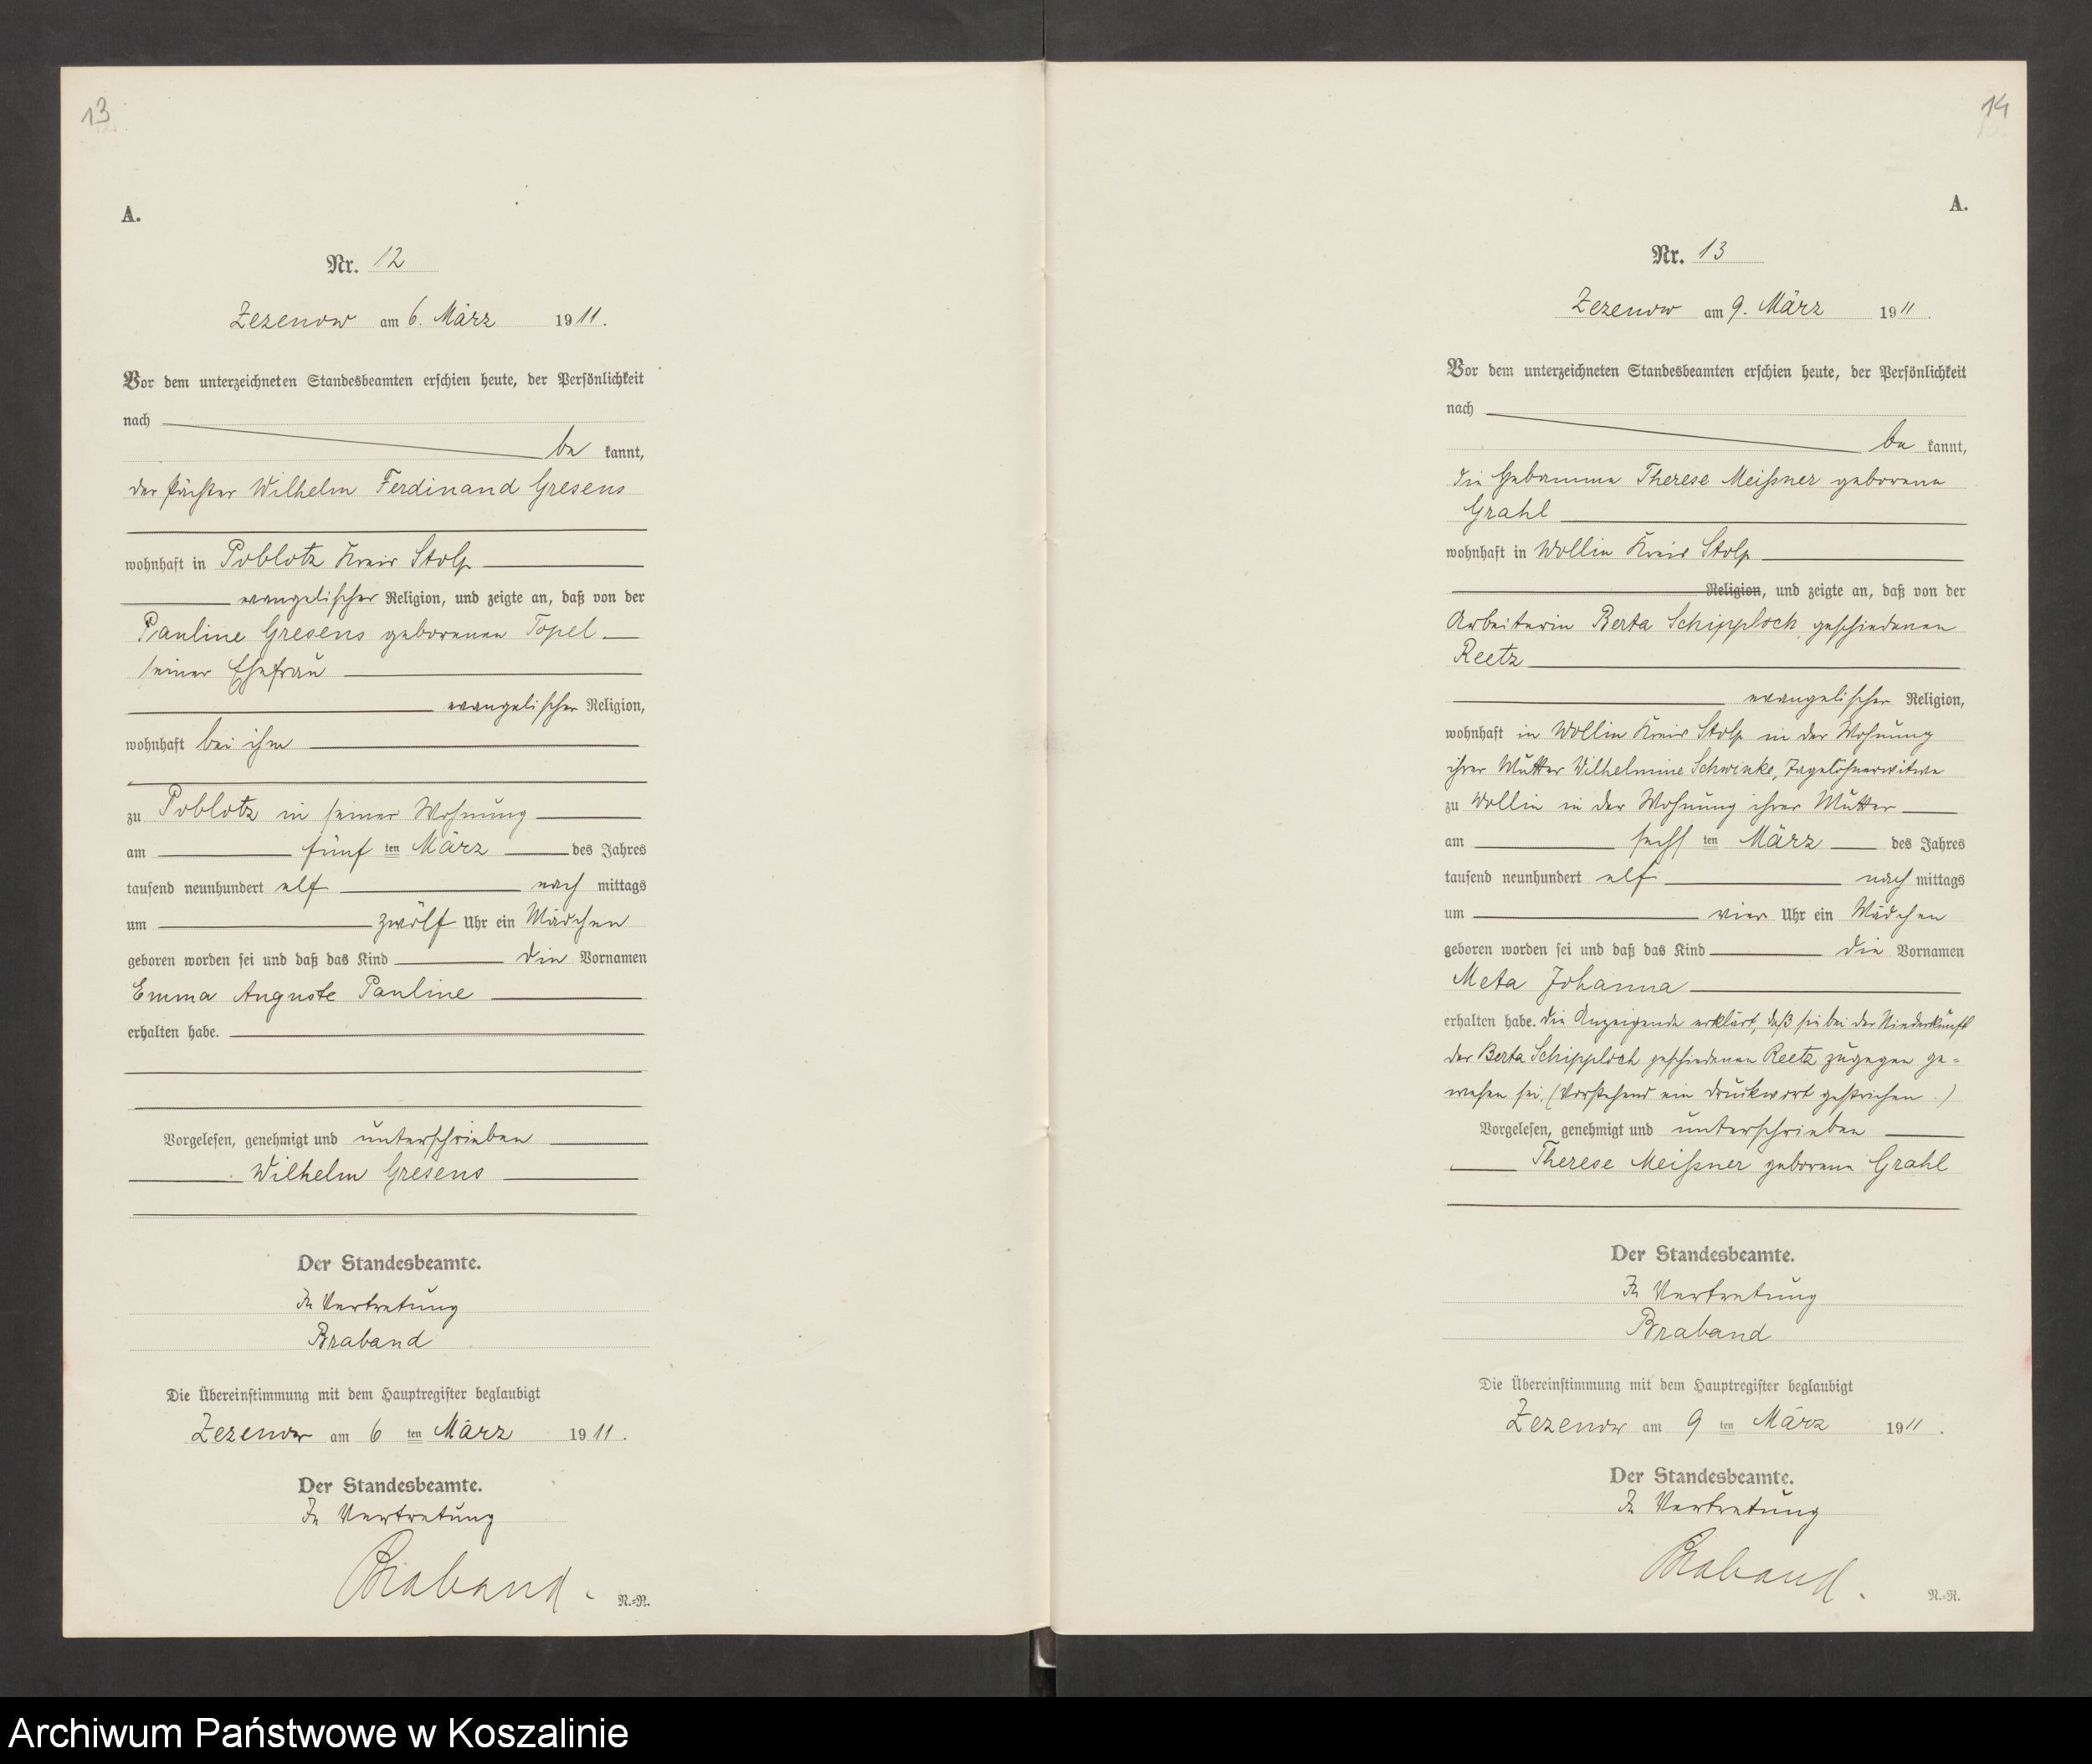 13
A.
Nr. 12
Zezenow am 6. März 1911.
Vor dem unterzeichneten Standesbeamten erschien heute, der Persönlichkeit
nach
be kannt,
der Pächter Wilhelm Ferdinand Gresens
wohnhaft in Poblotz Kreis Stolp
evangelischer Religion, und zeigte an, daß von der
Pauline Gresens geborenen Topel
seiner Ehefrau
evangelischer Religion,
wohnhaft bei ihm
zu Poblotz in seiner Wohnung
am fünf ten März des Jahres
tausend neunhundert elf nach mittags
um zwölf Uhr ein Mädchen
geboren worden sei und daß das Kind die Vornamen
Emma Auguste Pauline
erhalten habe.
Vorgelesen, genehmigt und unterschrieben
Wilhelm Gresens
Der Standesbeamte.
In Vertretung
Braband
Die Übereinstimmung mit dem Hauptregister beglaubigt
Zezenow am 6 ten März 1911.
Der Standesbeamte.
In Vertretung
Braband.
N.=R.
14
A.
Nr. 13
Zezenow am 9. März 1911.
Vor dem unterzeichneten Standesbeamten erschien heute, der Persönlichkeit
nach
be kannt,
die Hebamme Therese Meißner geborene
Grahl
wohnhaft in Wollin Kreis Stolp
Religion, und zeigte an, daß von der
Arbeiterin Berta Schipploch, geschiedenen
Reetz
evangelischer Religion,
wohnhaft in Wollin Kreis Stolp in der Wohnung
ihrer Mutter Wilhelmine Schwinke, Tagelöhnerwitwe
zu Wollin in der Wohnung ihrer Mutter
am sechs ten März des Jahres
tausend neunhundert elf nach mittags
um vier Uhr ein Mädchen
geboren worden sei und daß das Kind die Vornamen
Meta Johanna
erhalten habe. Die Anzeigende erklärt, daß sie bei der Niederkunft
der Berta Schipploch geschiedenen Reetz zugegen ge=
wesen sei. (Vorstehend ein Druckwort gestrichen.)
Vorgelesen, genehmigt und unterschrieben
Therese Meißner geborene Grahl
Der Standesbeamte.
In Vertretung
Braband
Die Übereinstimmung mit dem Hauptregister beglaubigt
Zezenow am 9 ten März 1911.
Der Standesbeamte.
In Vertretung
Braband.
N.=R.
Archiwum Państwowe w Koszalinie